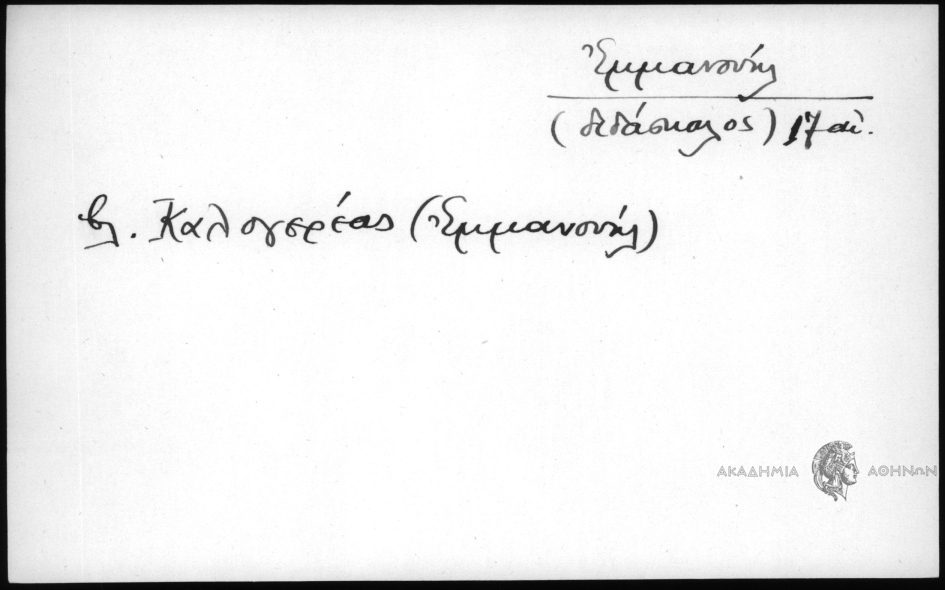 Ἐμμανουήλ
(διδάσκαλος) 17 αἰ.
βλ. Καλογερέας (Ἐμμανουήλ)
ΑΚΑΔΗΜΙΑ ΑΘΗΝΩΝ